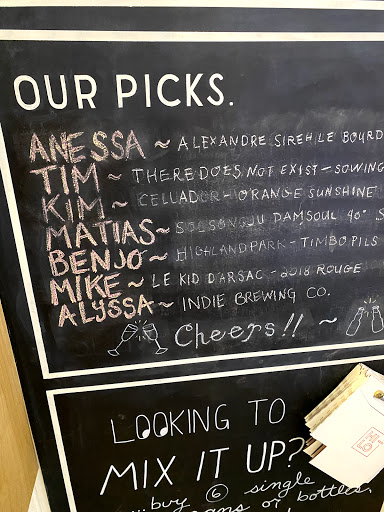 OUR PICKS.
ANESSA ~ ALEXANDRE SIREH LE BOURD
TIM ~ THERE DOES NOT EXIST - SOWING
KIM ~ CELLADOR - ORANGE SUNSHINE
MATIAS ~ DAMSOUL 40° S
BENJO ~ HIGHLAND PARK - TIMBO PILS
MIKE ~ LE KID D'ARSAC - 2018 ROUGE
ALYSSA ~ INDIE BREWING CO.
Cheers!! ~
LOOKING TO
MIX IT UP?
...buy 6 single
cans or bottles